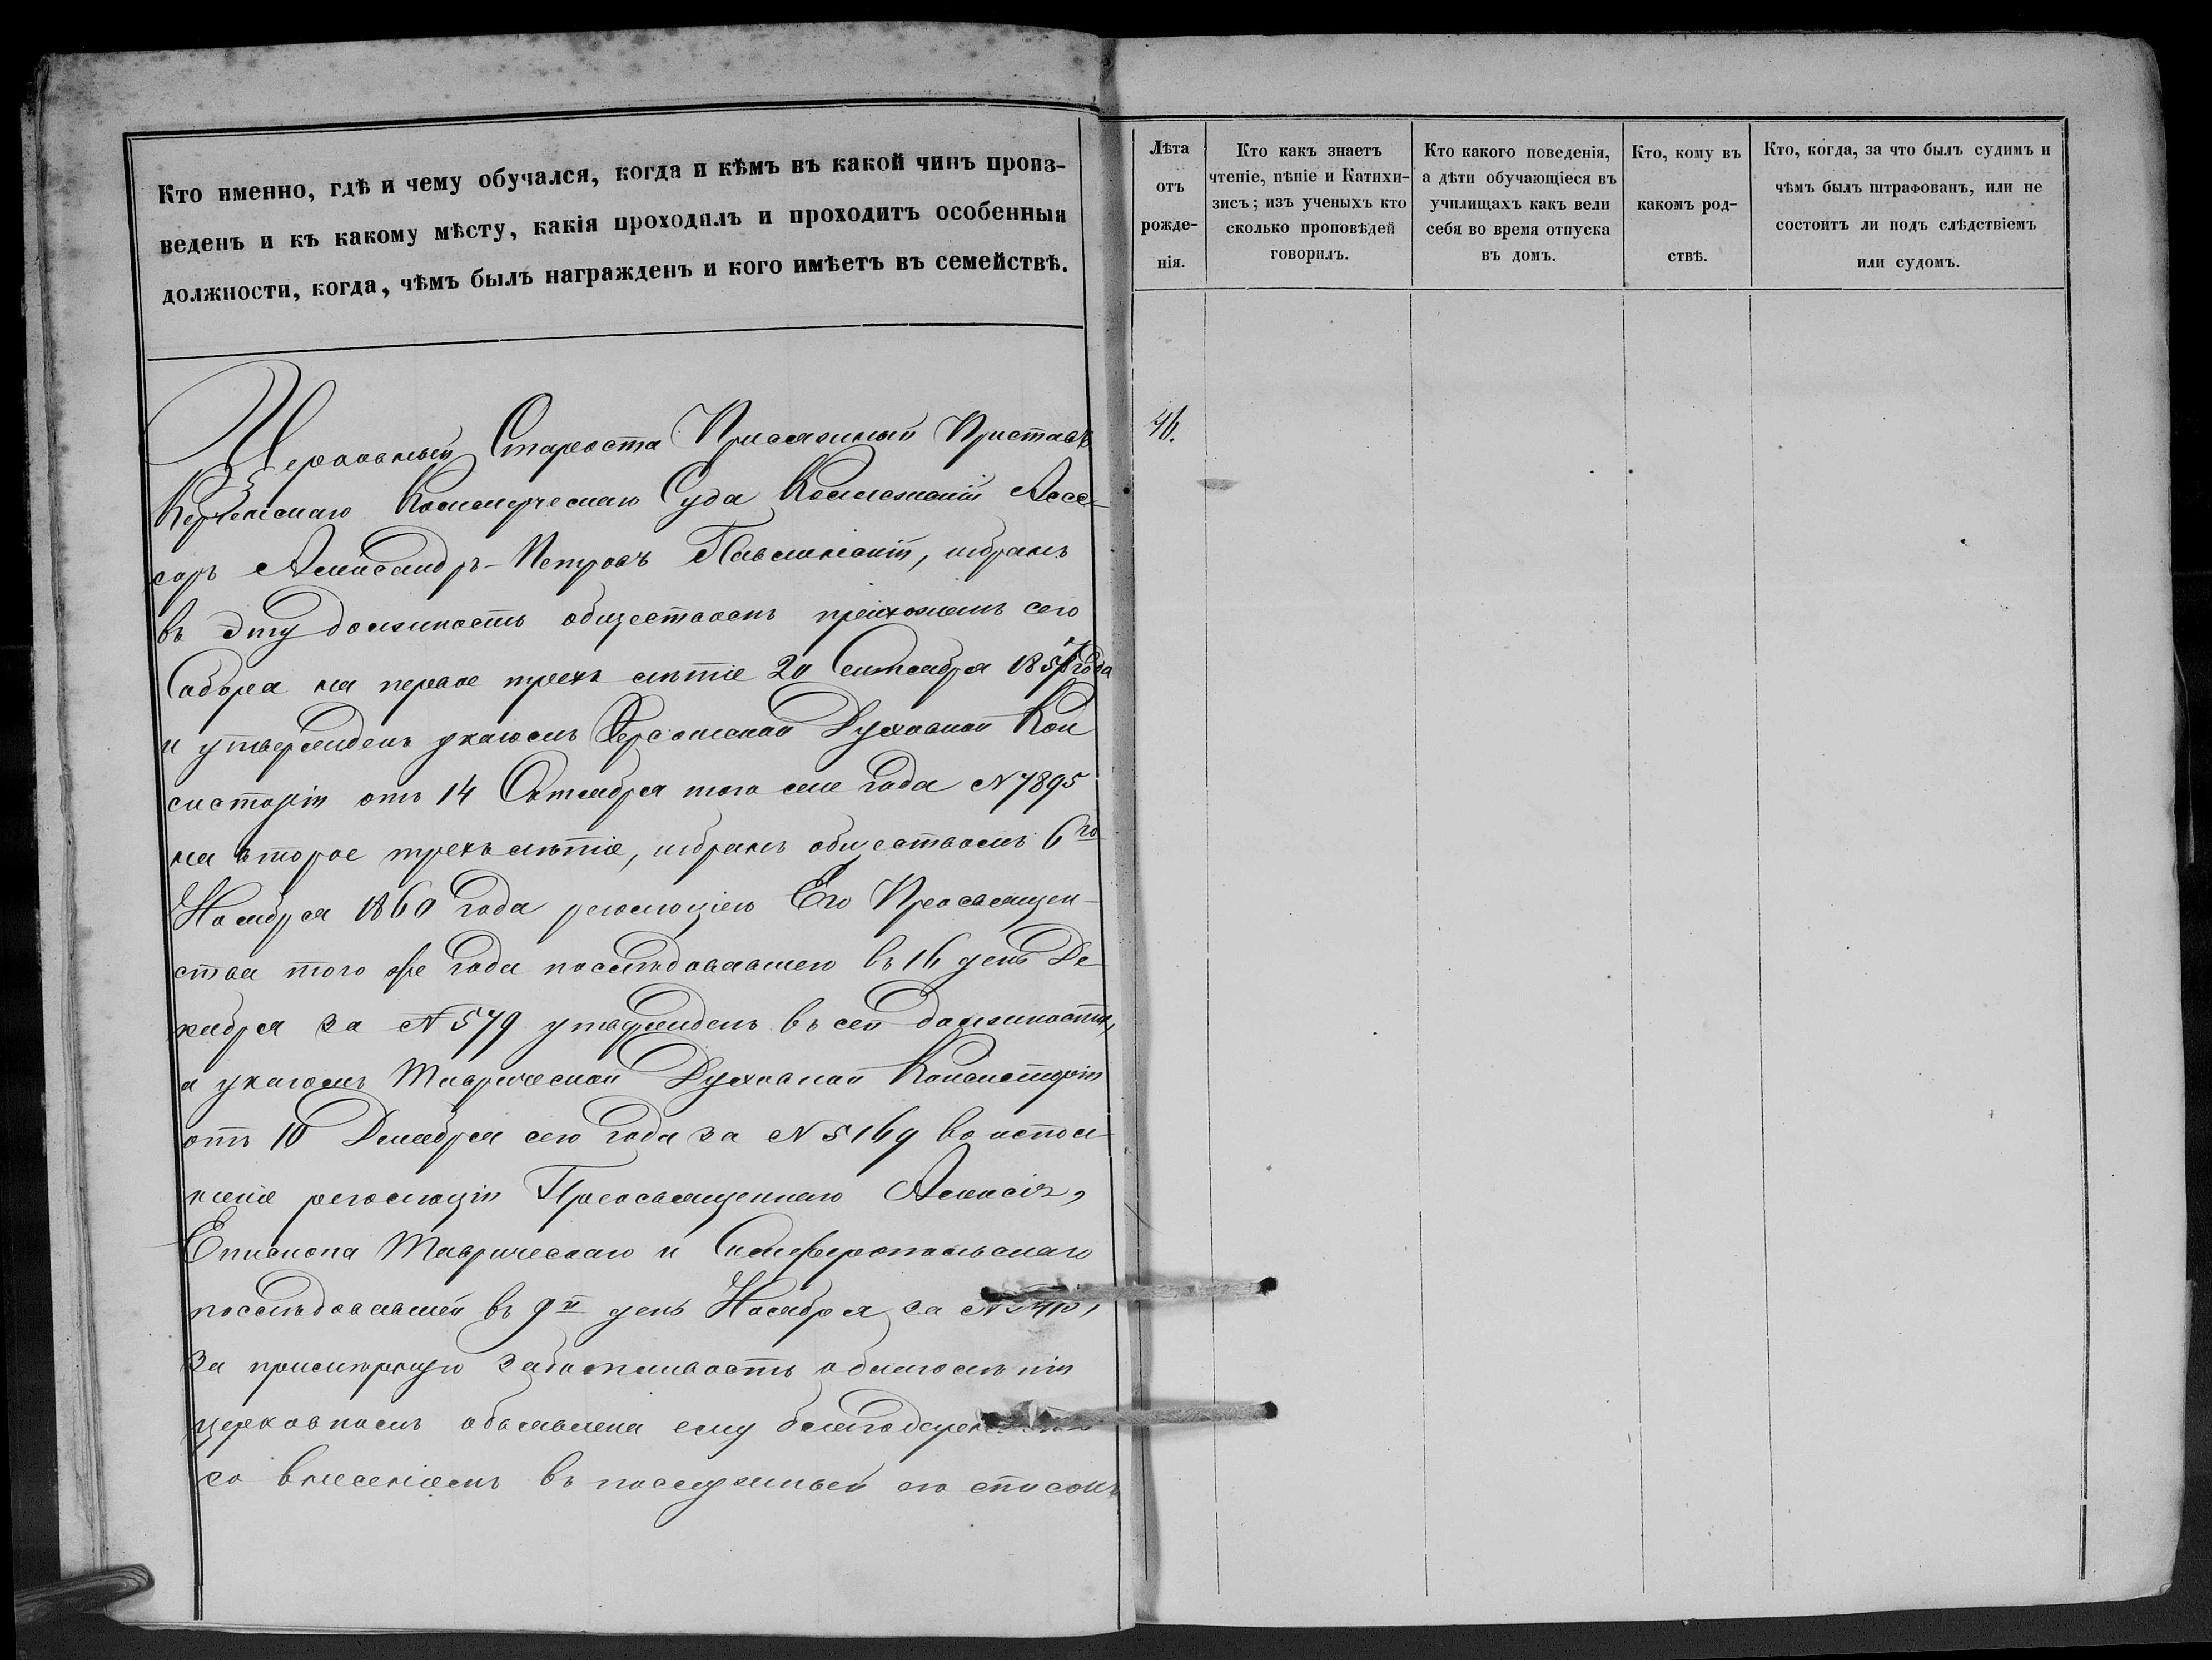 Кто именно, гдѣ и чему обучался, когда и кѣмъ въ какой чинъ произ-
веденъ и къ какому мѣсту, какія проходилъ и проходитъ особенныя
должности, когда, чѣмъ былъ награжденъ и кого имѣетъ въ семействѣ.
Церковный Староста Присяжный Приставъ
Керченскаго Коммерческаго Суда Коллежскій Ассе-
соръ Александръ Петровъ Павлинскій, избранъ
въ эту должность обществомъ прихожанъ сего
Собора на первое трехъ лѣтіе 20 Сентября 1857 года
и утвержденъ указомъ Херсонской Духовной Кон
систоріи отъ 14 Октября того же года N 7895
на второе трехълѣтіе, избранъ обществомъ 6го
Ноября 1860 года резолюціею Его Преосвящен-
ства того же года послѣдовавшею въ 16 день Де
кабря за N 579 утвержденъ въ сей должности,
а указомъ Таврической Духовной Консисторіи
отъ 10 Декабря сего года за N 5169 во испол-
неніе резолюціи Преосвященнаго Алексія,
Епископа Таврическаго и Симферопольскаго
послѣдовавшей въ 9й день Ноября за N
за примѣрную заботливость о благолѣпіи
церковномъ объявлена ему
со внесеніемъ въ послужный его списокъ
Лѣта
отъ
рожде-
нія.
46.
Кто какъ знаетъ
чтеніе, пѣніе и Катихи-
зисъ; изъ ученыхъ кто
сколько проповѣдей
говорилъ.
Кто какого поведенія,
а дѣти обучающіеся въ
училищахъ какъ вели
себя во время отпуска
въ домъ.
Кто, кому въ
какомъ род-
ствѣ.
Кто, когда, за что былъ судимъ и
чѣмъ былъ штрафованъ, или не
состоитъ ли подъ слѣдствіемъ
или судомъ.